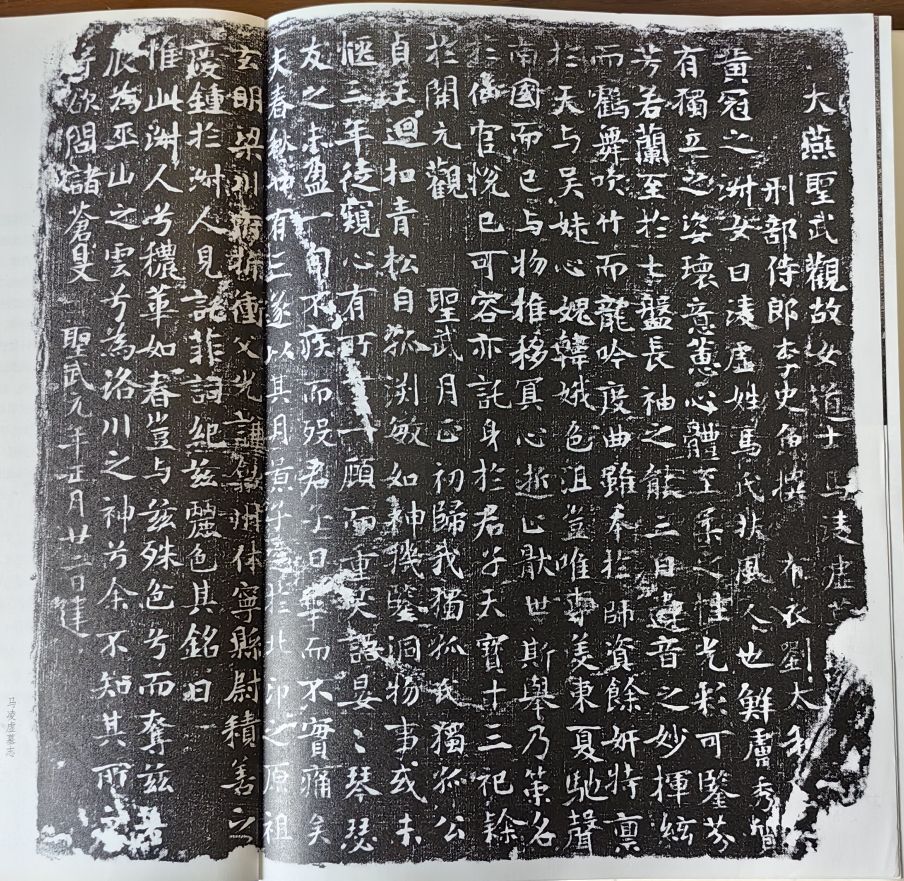 大燕聖武觀故女道士馬凌虛墓
刑部侍郎李史魚撰 布衣劉太和
黃冠之淑女曰凌虛姓馬氏扶風人也鮮膚秀質
有獨立之姿瓌意蕙心體至柔之性光彩可鑒芬
芳若蘭至於七盤長袖之能三日遺音之妙揮絃
而鶴舞吹竹而龍吟度曲雖本於師資餘妍特稟
於天与吳妹心愧韓娥色沮豈唯專美東夏馳聲
南國而已与物推移冥心逝止猒世斯舉乃策名
於仙官悅已可容亦託身於君子天寶十三祀隸
於開元觀 聖武月正初歸我獨孤氏獨孤公
貞玉迴扣青松自孤淵敏如神機鑒洞物事或未
愜三年徒窺心有所一顧而重笑語晏〻琴瑟
友之未盈一旬不疾而殁君子曰華而不實痛矣
夫春秋廿有三遂以其月景子窆於北邙之原祖
玄明梁川府折衝父光謙歙州休寧縣尉積善之
慶鍾於淑人見託菲詞紀兹麗色其銘曰
惟此淑人兮穠華如春豈与兹殊色兮而奪兹
辰為巫山之雲兮為洛川之神兮余不知其所之
将欲問諸蒼旻 聖武元年正月廿二日建
马凌虚墓志